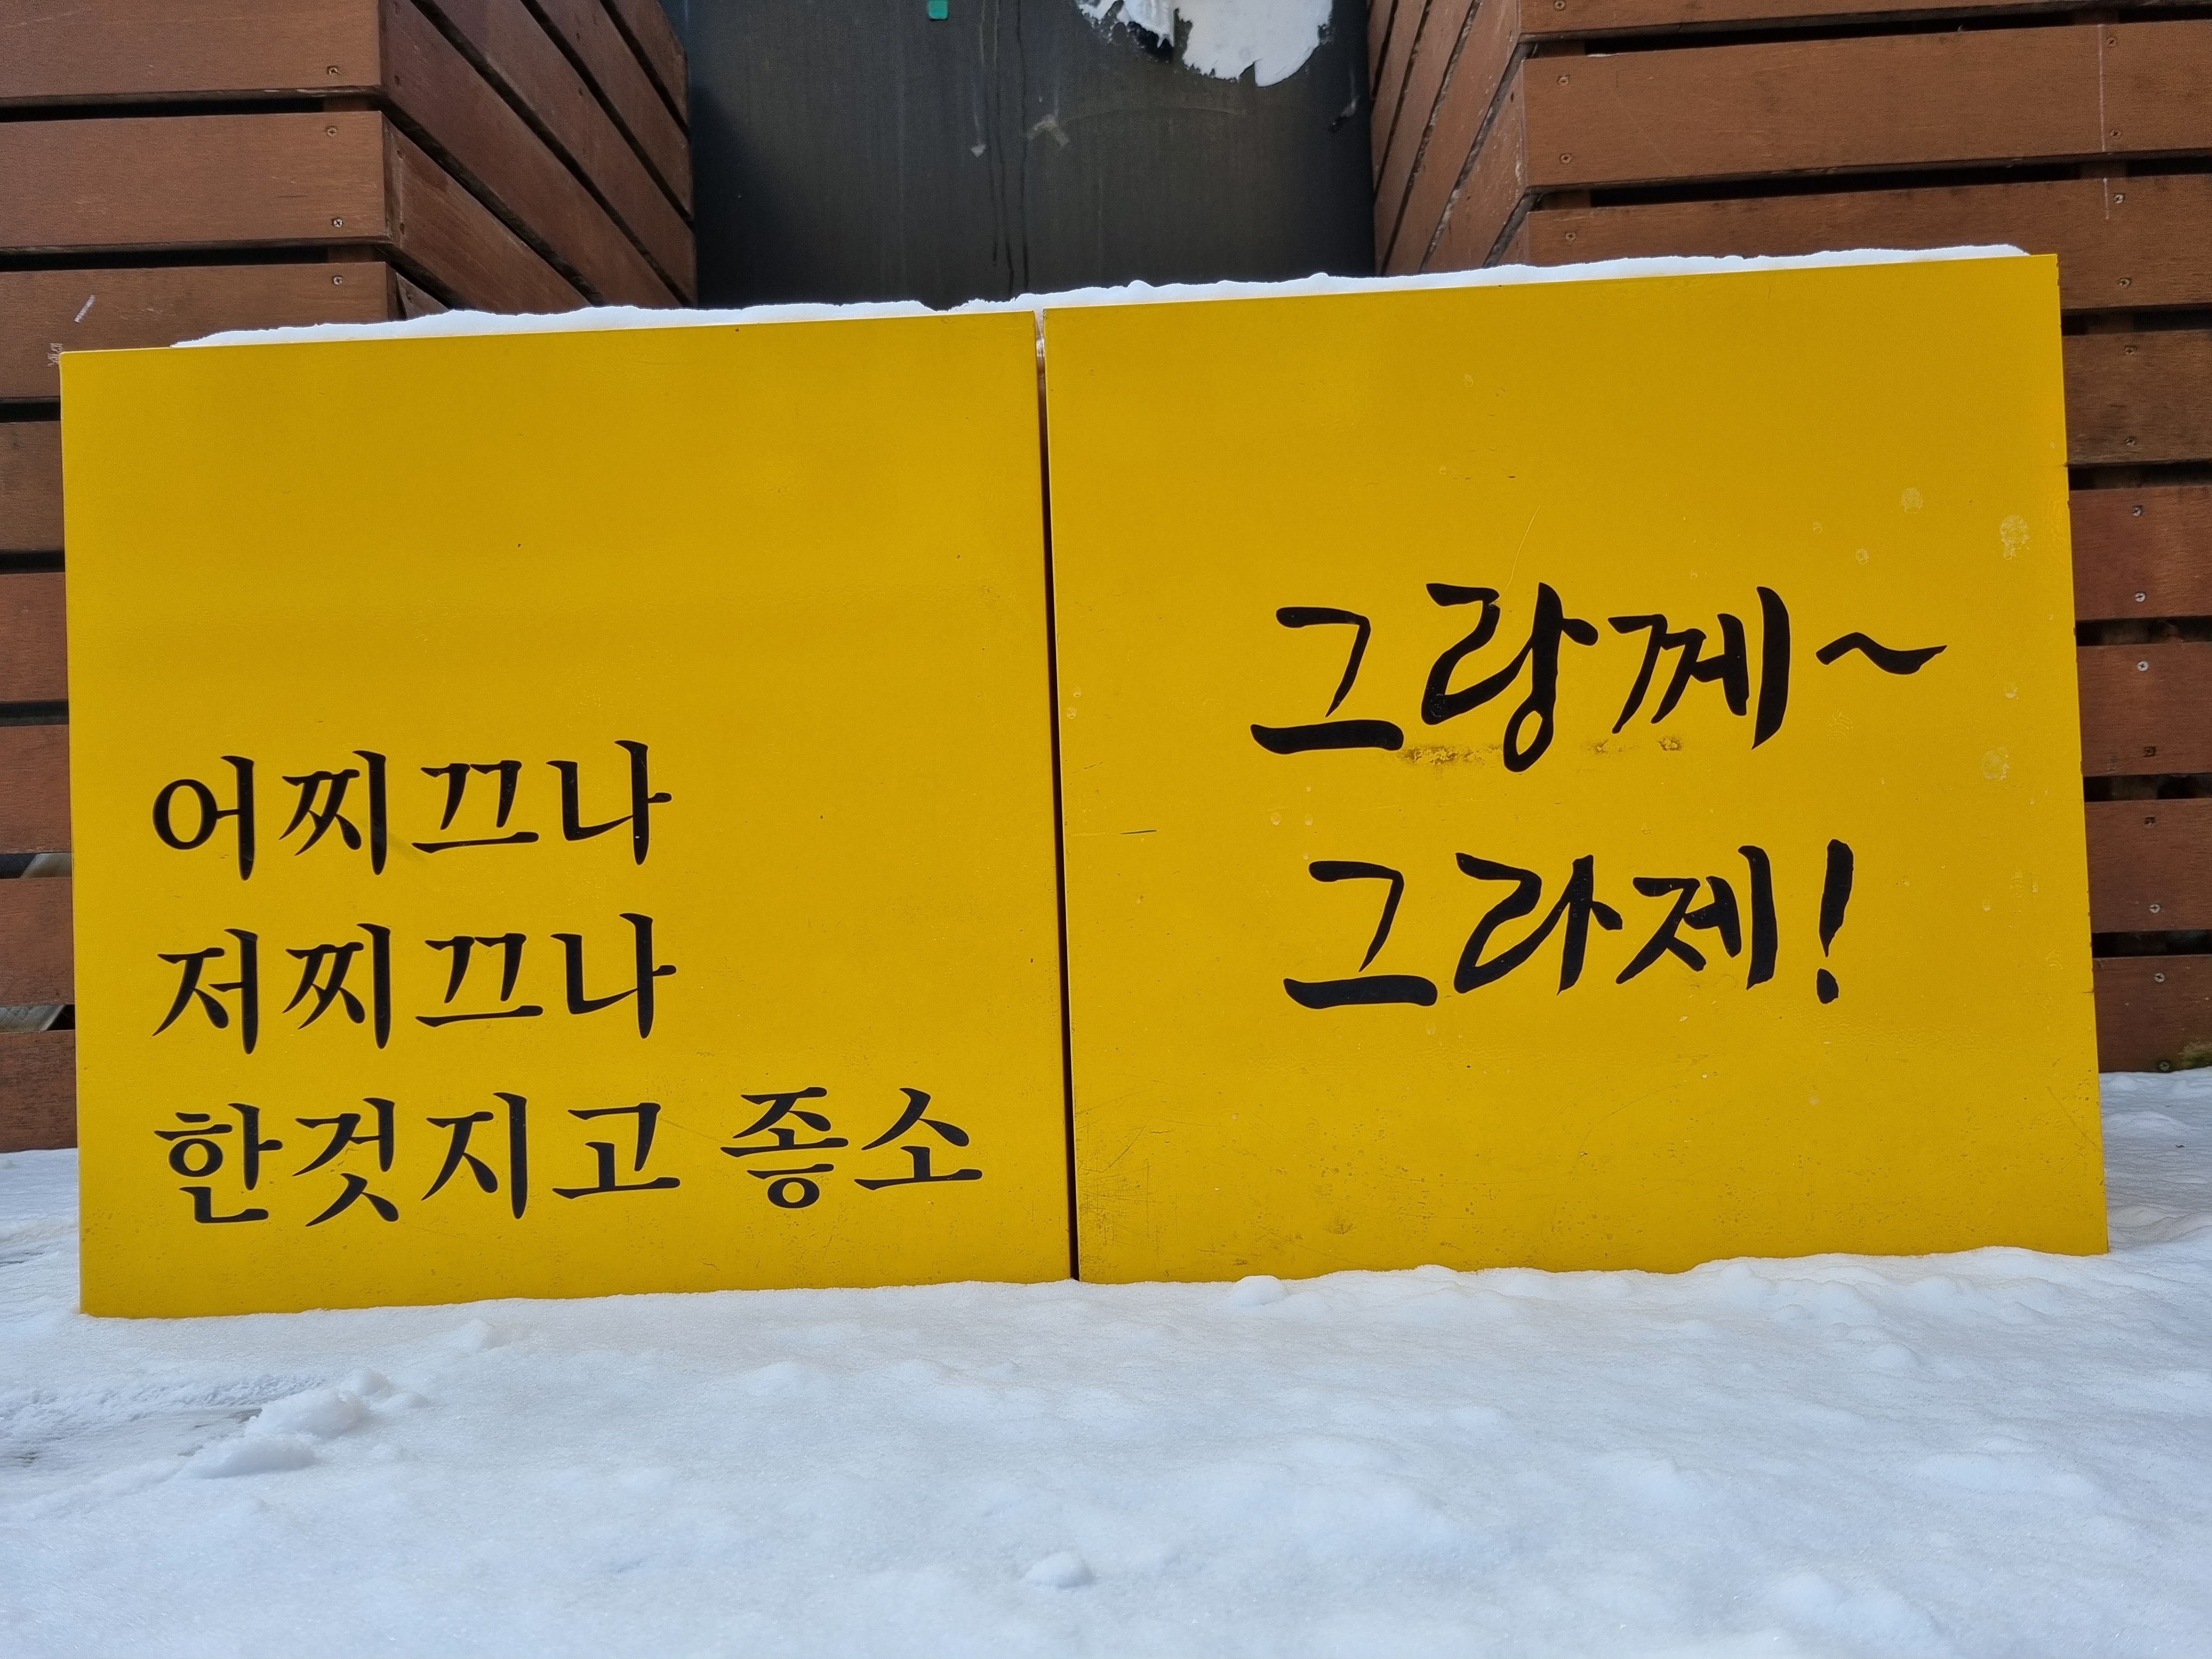 어찌끄나
저찌끄나
한것지고 좋소
그랑께~
그라제!